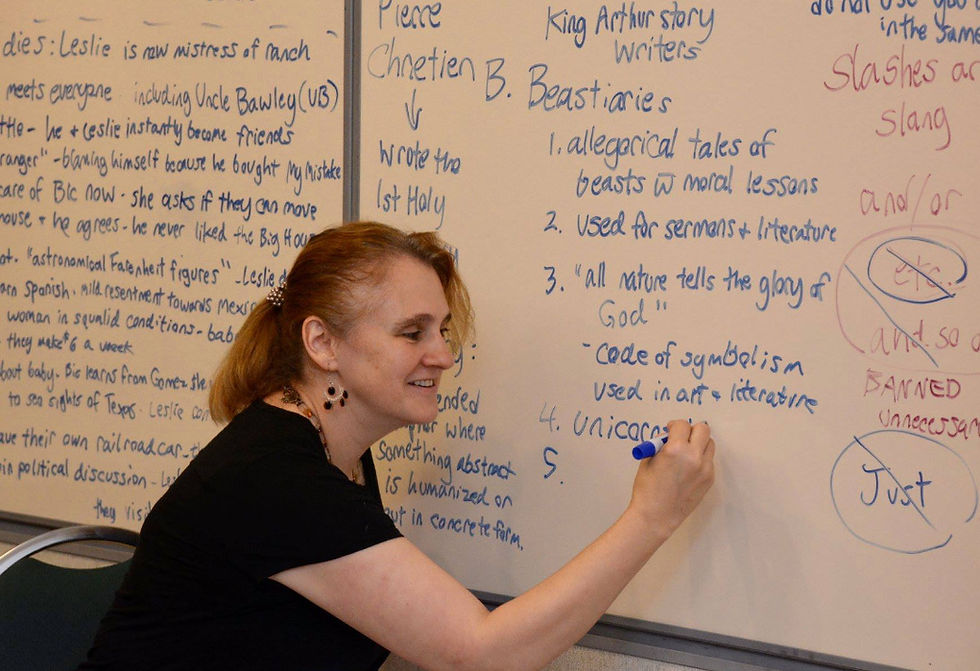 dies: Leslie is new mistress of ranch
meets everyone including Uncle Bawley (UB)
he + Leslie instantly become friends
ranger" - blaming himself because he bought My Mistake
care of Bic now - she asks if they can move
house + he agrees - he never liked the Big Hou
"astronomical Farenheit figures" - Leslie
Spanish. mild resentment towards Mexi
woman in squalid conditions - bab
they make $6 a week
bout baby. Bic learns from Gomez she
to see sights of Texas. Leslie
ave their own railroad car - t
in political discussion - Le
they visi
Pierre
Chretien
↓
wrote the
1st Holy
ended
where
something abstract
is humanized or
put in concrete form.
King Arthur story
writers
B. Beastiaries
1. allegorical tales of
beasts w̄ moral lessons
2. used for sermons + literature
3. "all nature tells the glory of
God"
- code of symbolism
used in art + literature
4. unicorn
5.
do not use you
in the same
Slashes ar
slang
and/or
etc.
and so o
BANNED
unnecessar
Just